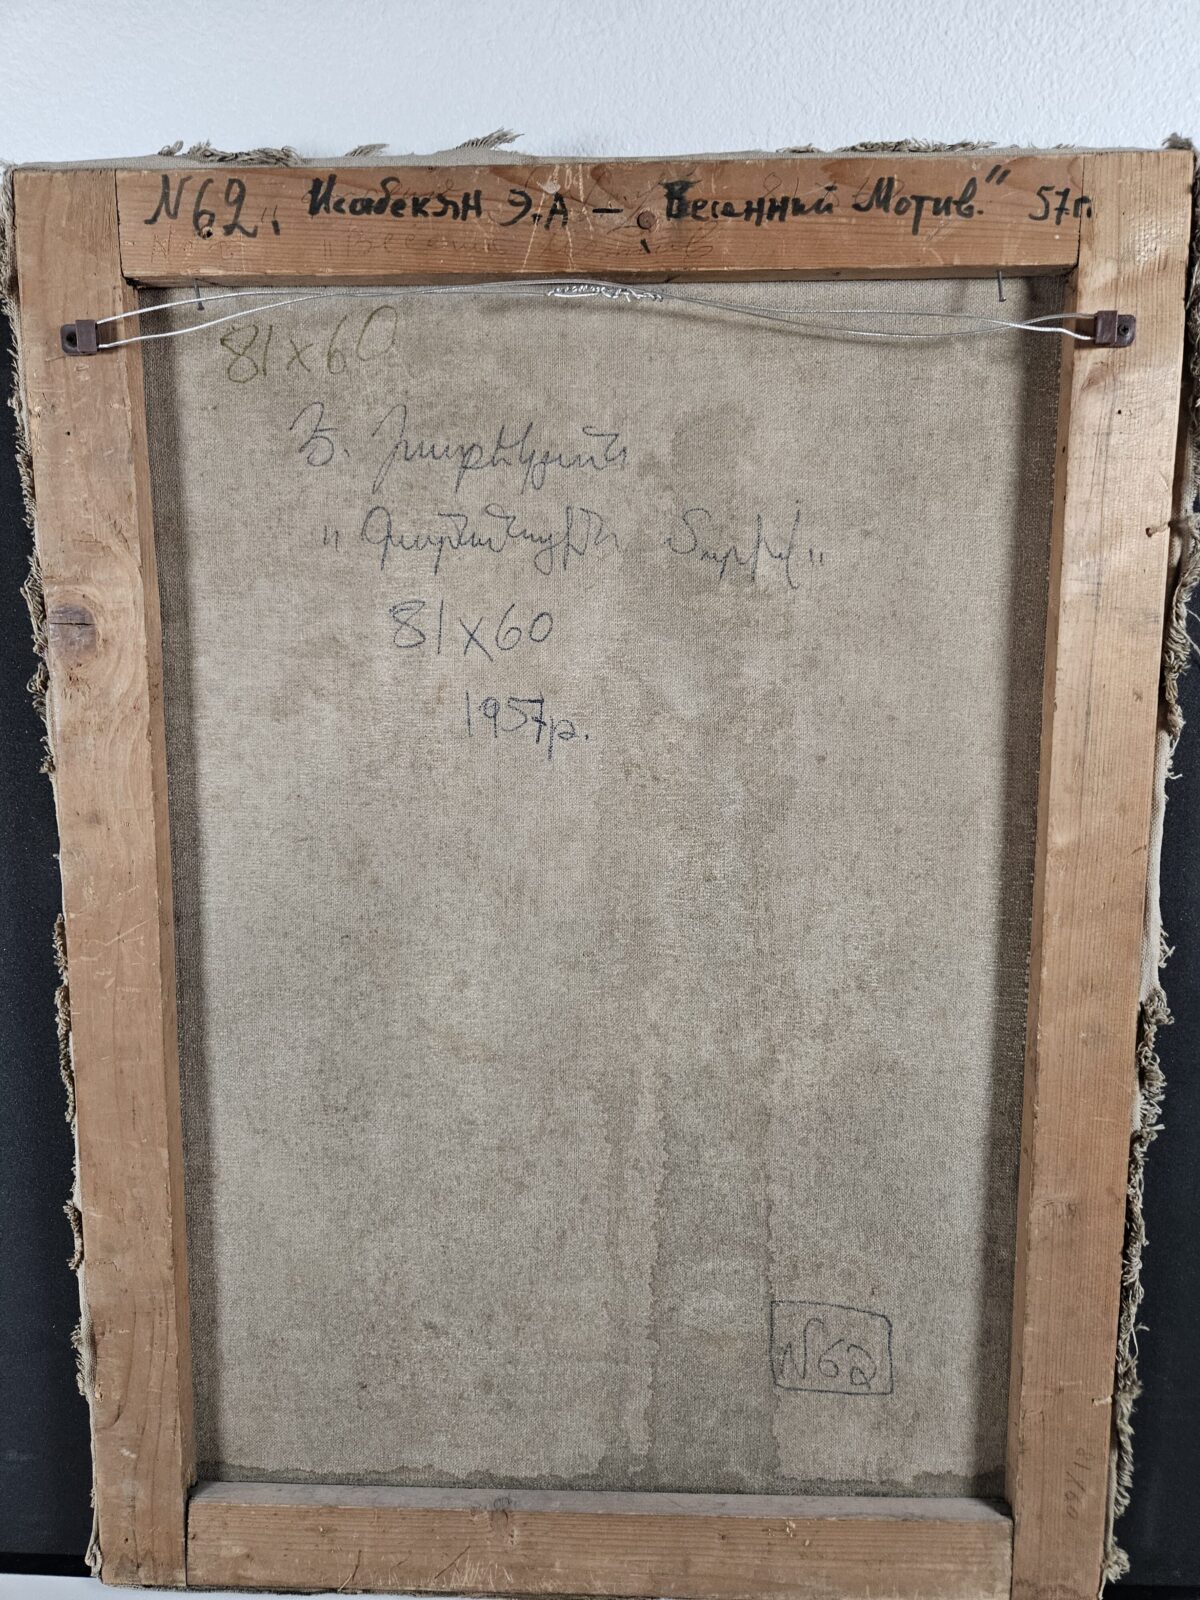 N62. Исабекян Э.А – „Весенний Мотив." 57г.
81x60
Է. Իսաբեկյան
„Գարնանային մոտիվ"
81x60
1957թ.
N62
81/60